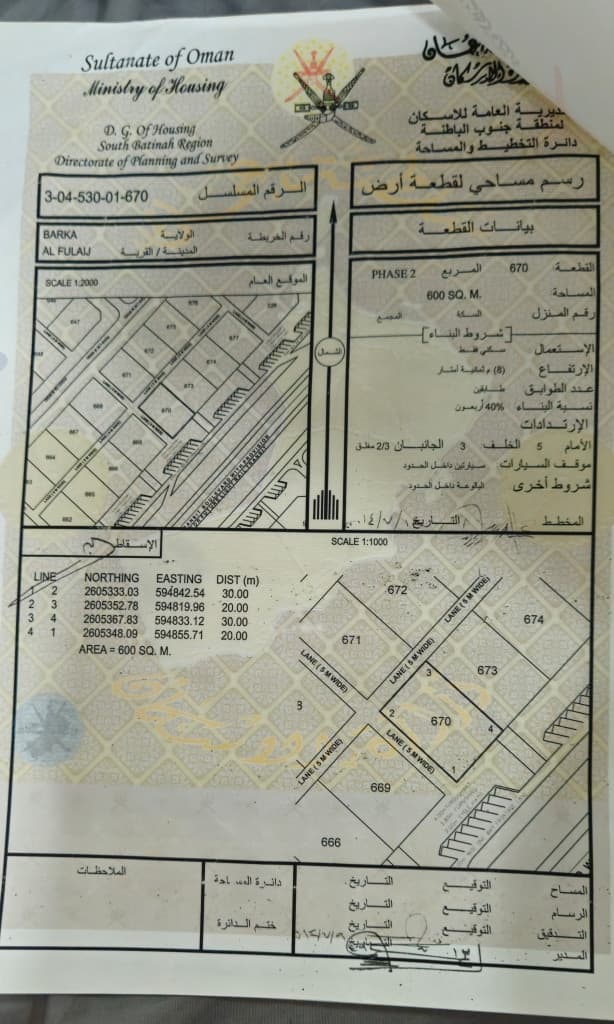 Sultanate of Oman
Ministry of Housing
D. G. Of Housing
South Batinah Region
Directorate of Planning and Survey
المديرية العامة للاسكان
لمنطقة جنوب الباطنة
دائرة التخطيط والمساحة
الرقم المسلسل 3-04-530-01-670
رسم مساحي لقطعة أرض
رقم الخريطة الولاية BARKA
المدينة / القرية AL FULAIJ
بيانات القطعة
الموقع العام SCALE 1:2000
القطعة: 670 المربع PHASE 2
المساحة 600 SQ. M.
رقم المنزل السكة المجمع
شروط البناء
الإستعمال سكني فقط
الإرتفاع (8) م ثمانية أمتار
عدد الطوابق طابقين
نسبة البناء 40% أربعون
الإرتدادات
الأمام 5 الخلف 3 الجانبان 2/3 مغلق
موقف السيارات سيارتين داخل الحدود
شروط أخرى البالوعة داخل الحدود
المخطط التاريخ
الشمال
647
676
677
675
674
672
671
673
670
668
669
667
666
664
665
662
الإسقاط
SCALE 1:1000
LINE NORTHING EASTING DIST (m)
1 2 2605333.03 594842.54 30.00
2 3 2605352.78 594819.96 20.00
3 4 2605367.83 594833.12 30.00
4 1 2605348.09 594855.71 20.00
AREA = 600 SQ. M.
672
LANE ( 5 M WIDE)
674
671
LANE ( 5 M WIDE)
673
3
LANE ( 5 M WIDE)
2
670
4
LANE ( 5 M WIDE)
1
LANE ( 5 M WIDE)
669
666
الملاحظات
دائرة المساحة
ختم الدائرة
المساح التوقيع التاريخ
الرسام التوقيع التاريخ
التدقيق التوقيع التاريخ
المدير